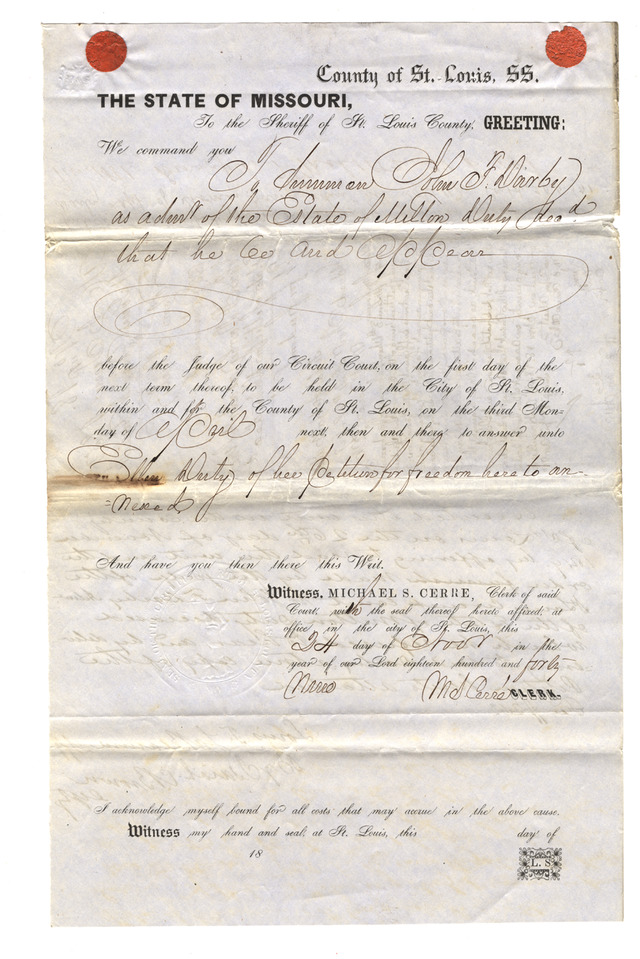 County of St. Louis, SS.
THE STATE OF MISSOURI,
To the Sheriff of St. Louis County, GREETING:
We command you
To summon John F. Darby
as admr of the Estate of Milton Duty decd
that he be and appear
before the Judge of our Circuit Court, on the first day of the
next term thereof, to be held in the City of St. Louis,
within and for the County of St. Louis, on the third Mon-
day of April next, then and there to answer unto
Ellen Duty of her Petition for freedom here to an
=nexed
And have you then there this Writ.
Witness, MICHAEL S. CERRE, Clerk of said
Court, with the seal thereof hereto affixed, at
office in the city of St. Louis, this
24 day of Novr in the
year of our Lord eighteen hundred and forty
Nine M S Cerré CLERK.
I acknowledge myself bound for all costs that may accrue in the above cause.
Witness my hand and seal, at St. Louis, this day of
18
L. S.